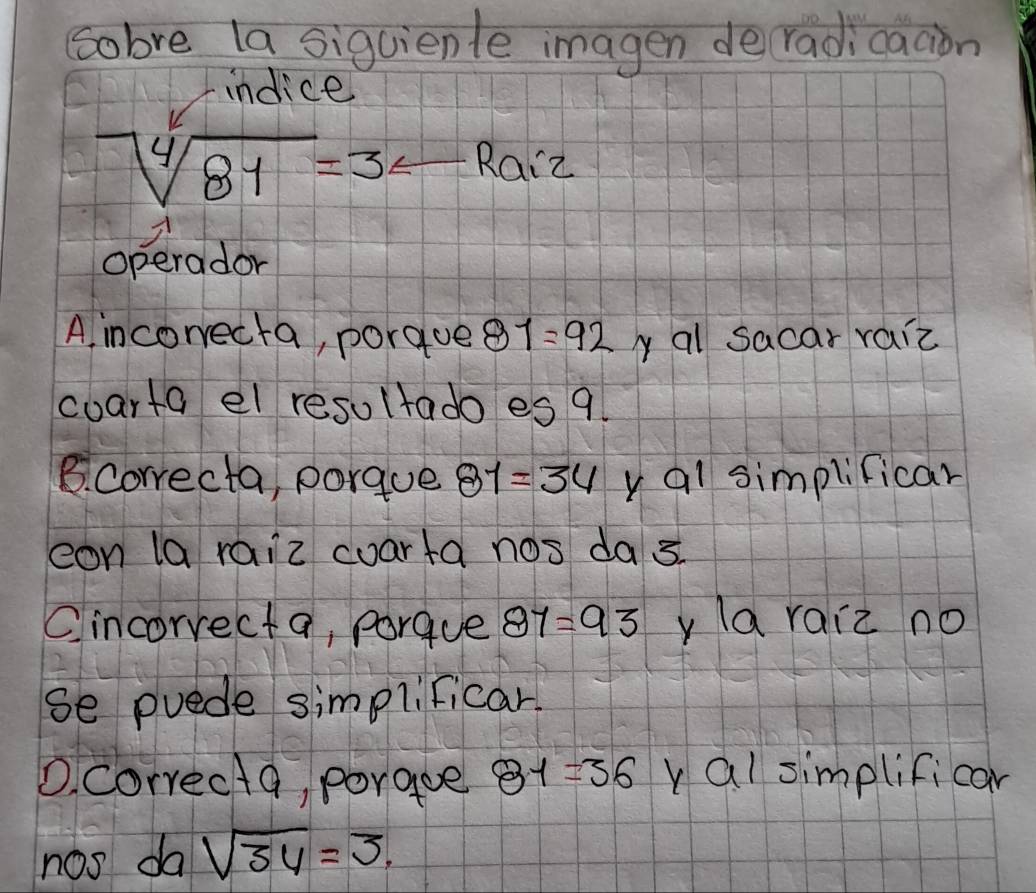 Sobre la siguiente imagen de radicación
índice
∜81 = 3 ← Raíz
operador
A. incorrecta, porque 81=92 y al sacar raíz
cuarta el resultado es 9.
B. correcta, porque 81=34 y al simplificar
con la raíz cuarta nos da 3.
C. incorrecta, porque 81=93 y la raíz no
se puede simplificar.
D. correcta, porque 81=36 y al simplificar
nos da √34 = 3.